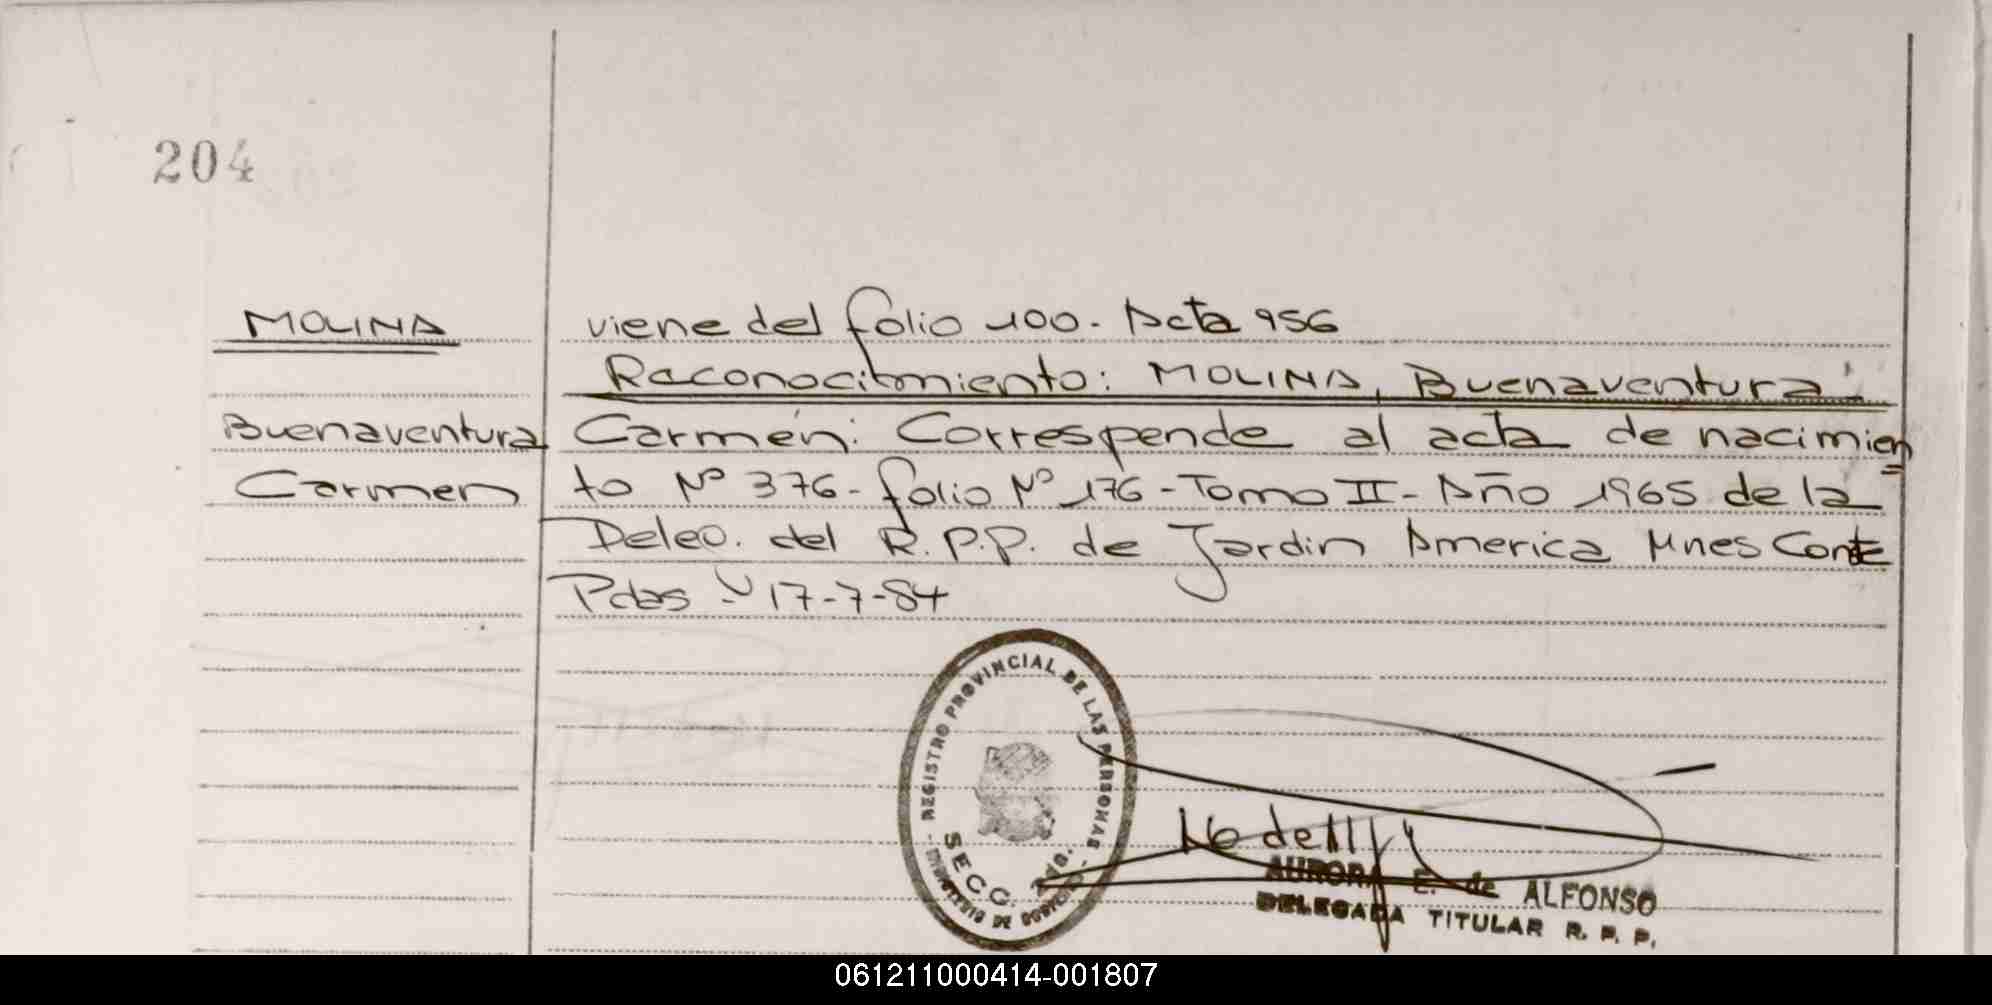 204
MOLINA
Buenaventura
Carmen
viene del folio 100. Acta 956
Reconocimiento: MOLINA, Buenaventura
Carmen: Corresponde al acta de nacimien
to Nº 376 - folio Nº 176 - Tomo II - Año 1965 de la
Deleg. del R.P.P. de Jardin America Mnes Conte
Pdas 17-7-84
REGISTRO PROVINCIAL DE LAS PERSONAS
MINISTERIO DE GOBIERNO
SECC.
AURORA E. de ALFONSO
DELEGADA TITULAR R. P. P.
061211000414-001807